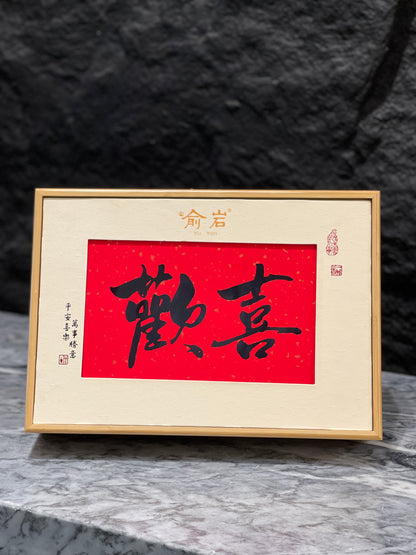 俞岩
YU YAN
喜歡
萬事勝意
平安喜樂